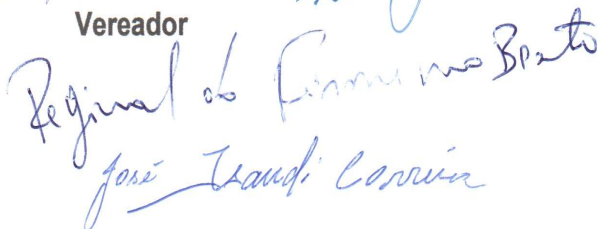 Vereador
Reginaldo Firmino Bento
José Irandi Correia